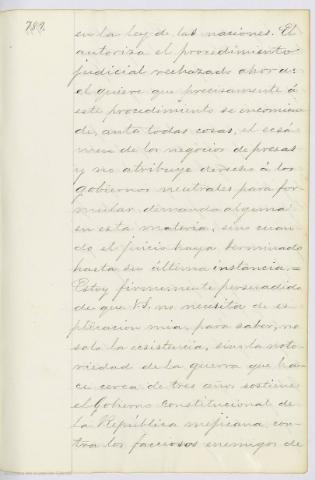 789.
en la Ley de las naciones. El
autoriza el procedimiento
judicial rechazado ahora:
el quiere que precisamente á
este procedimiento se encomien
de, ante todas cosas, el ecsá
men de los negocios de presas
y no atribuye derecho á los
gobiernos neutrales para for
mular demanda alguna
en esta materia, sino cuan
do el juicio haya terminado
hasta su última instancia.=
Estoy firmemente persuadido
de que VS. no necesita de es
plicacion mia, para saber, no
solo la ecsistencia, sino la noto
riedad de la guerra que ha
ce cerca de tres años sostiene
el Gobierno Constitucional de
la República mejicana con
tra los facciosos enemigos de